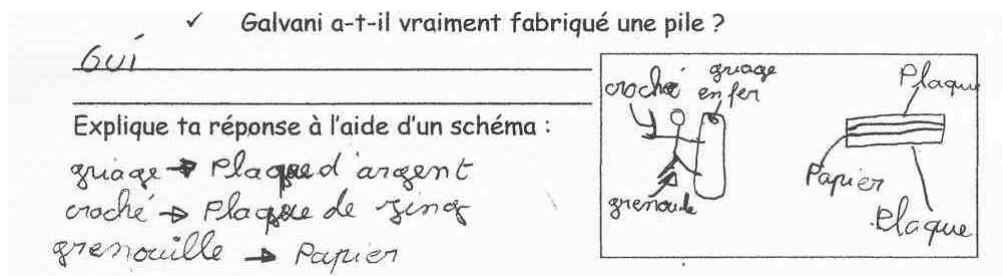 ✓ Galvani a-t-il vraiment fabriqué une pile ?
Oui
Explique ta réponse à l'aide d'un schéma :
griage → Plaque d'argent
croché → Plaque de zinq
grenouille → Papier
croché
griage
en fer
grenouille
Plaque
Papier
Plaque